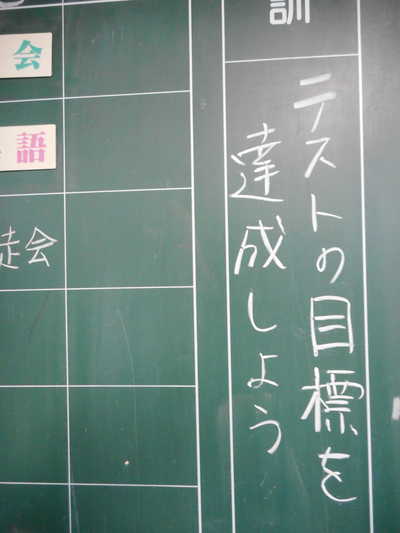 訓
テストの目標を
達成しよう
会
語
徒会